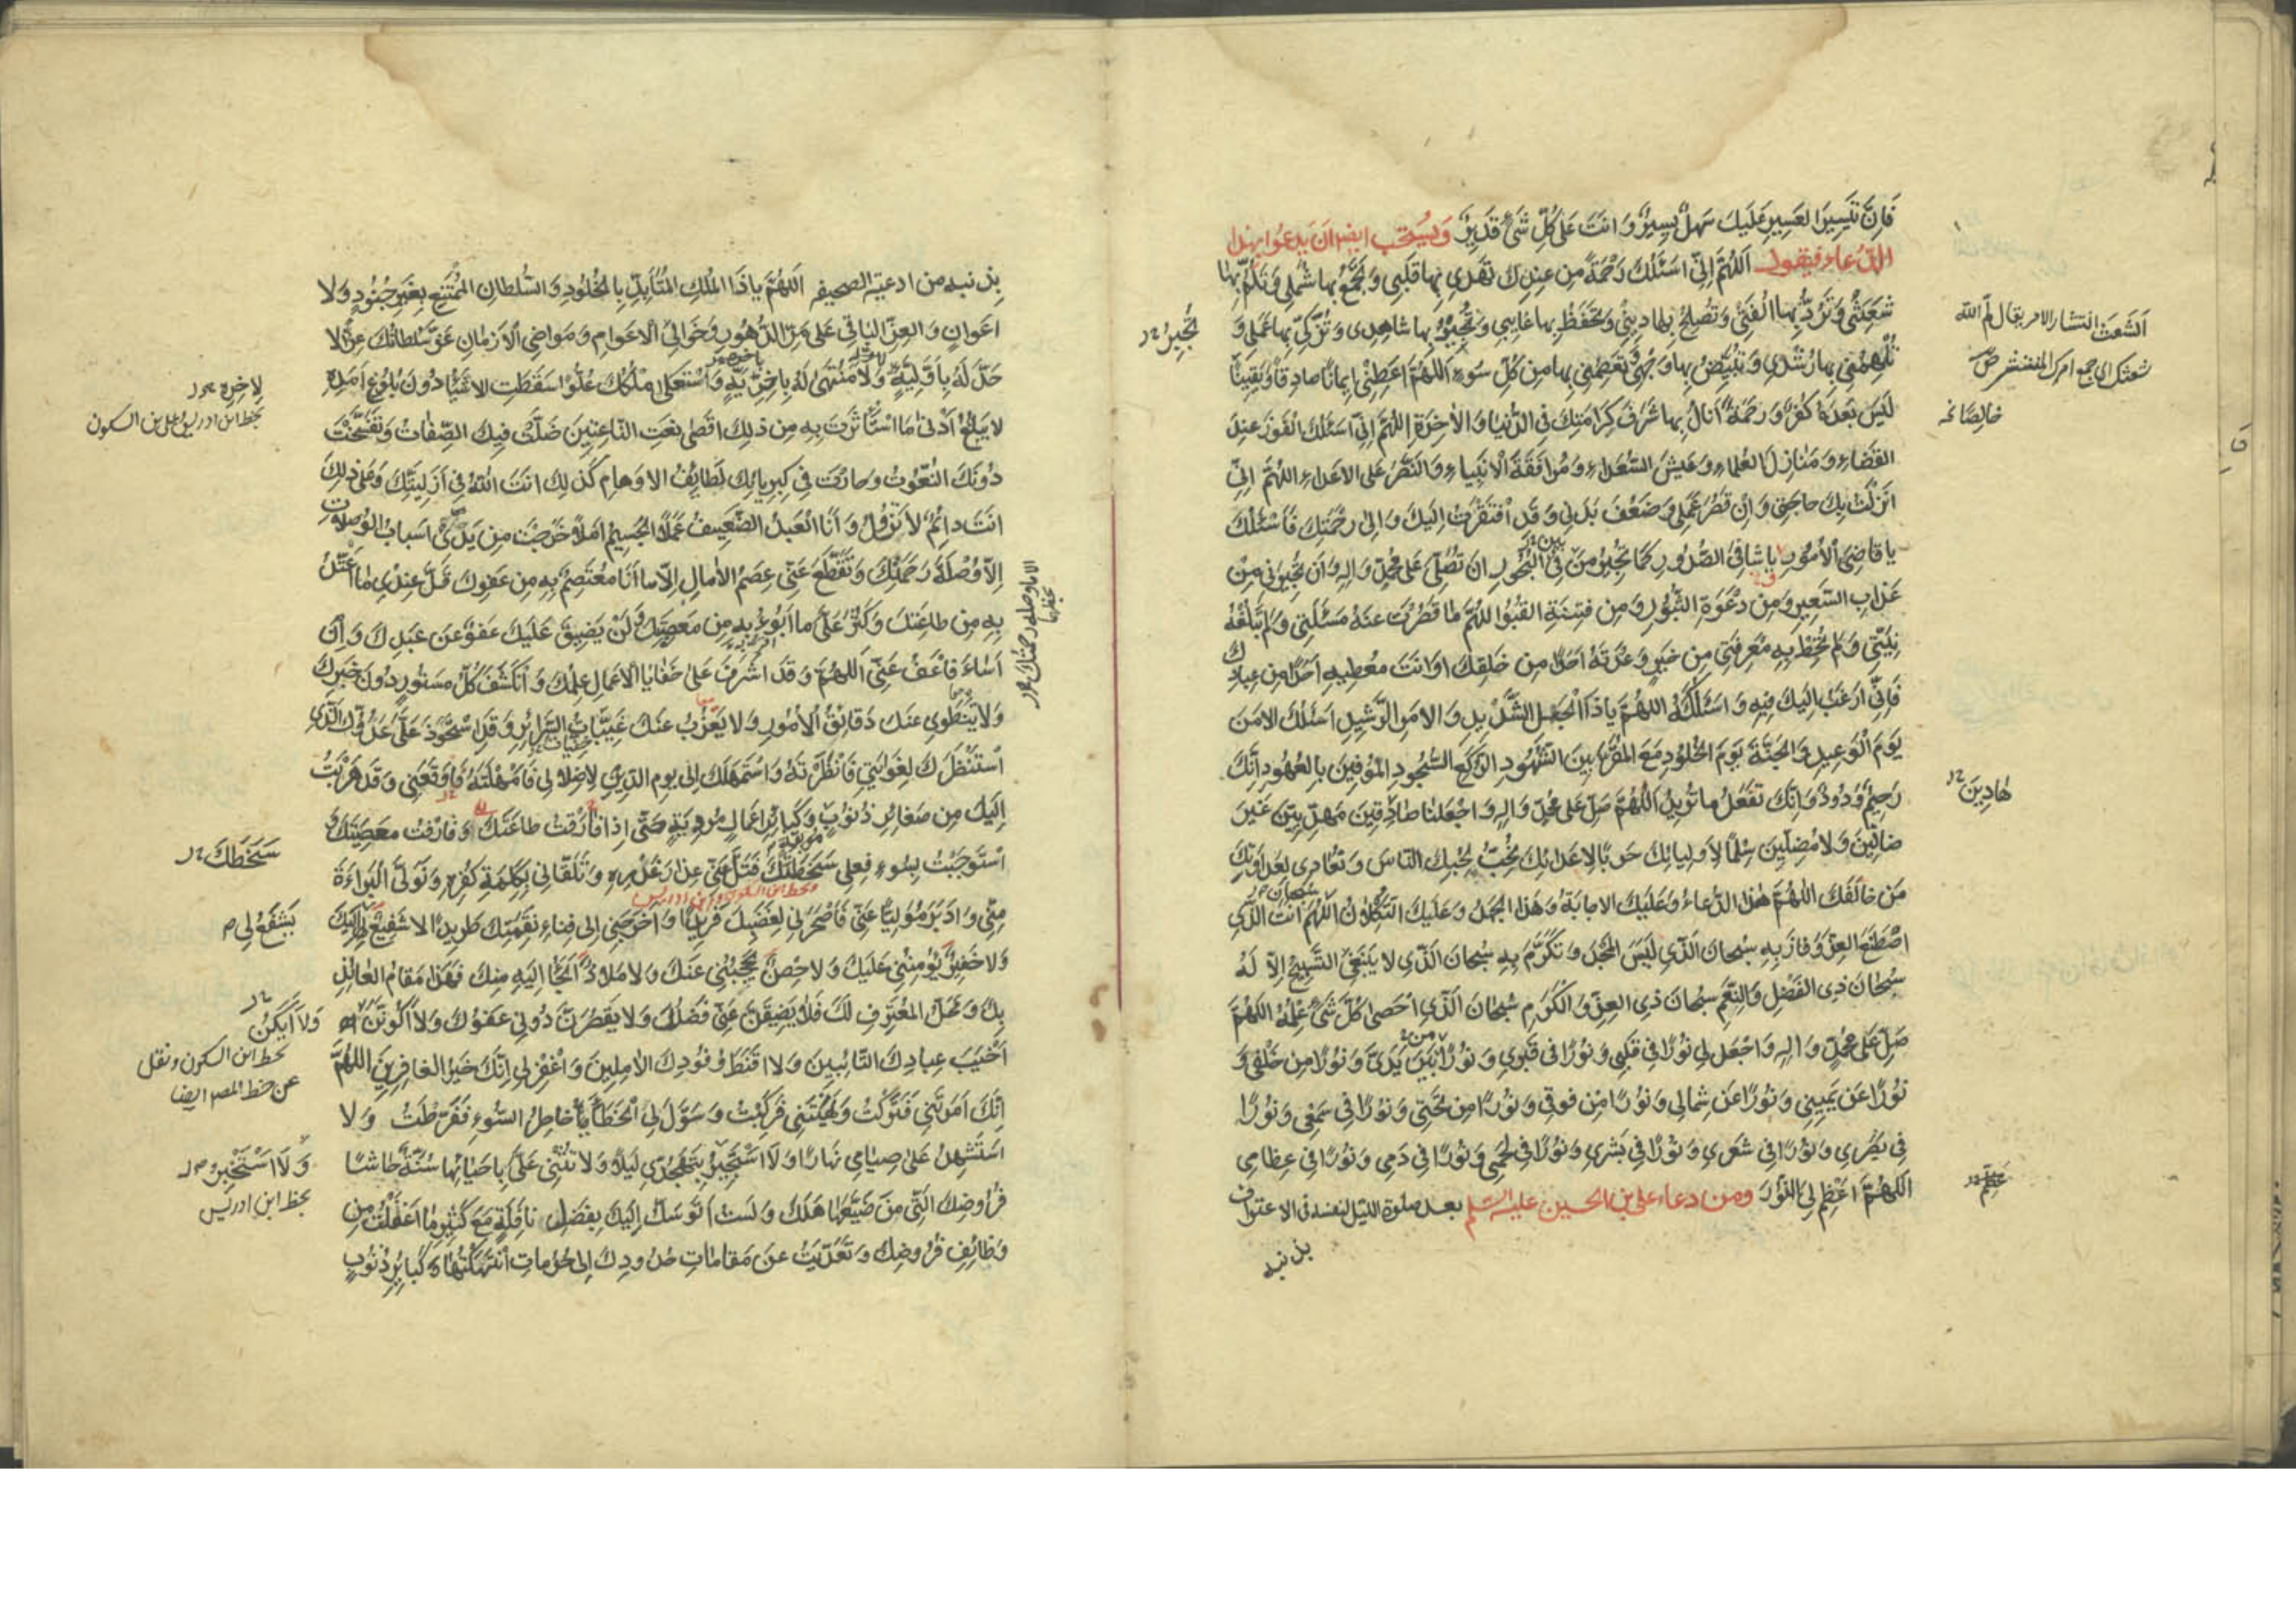 فَاِنَّ تَيْسِيرَ العَسِيرِ عَلَيكَ سَهلٌ يَسِيرٌ وَ انتَ عَلى كُلِّ شَئٍ قَدِيرٌ وَيُستحب ايضا اَن يَدعُوا بهذا
الدّعاء فيقول اَللهُمَّ اِنِّى اَسئَلُكَ رَحْمَةً مِن عِندِكَ تَهدِي بِها قَلبِي وَ تَجمَعُ بِها شَملِي وَ تَلُمُّ بِها
شَعَثِي وَ تَرُدُّ بِها اُلفَتِي وَ تُصلِحُ بِها دِينِي وَ تَحفَظُ بِها غايِبي وَ بِها شاهِدِى وَ تُزَكِّي بِها عَمَلي وَ
تُلهِمُنِي بِها رُشدِي وَ تُبَيِّضُ بِها وَجهِي وَ تَعصِمُنِي بِها مِن كُلِّ سُوءٍ اَللهُمَّ اَعطِنِي اِيمانًا صادِقًا وَ يَقِينًا
لَيسَ بَعدَهُ كُفرٌ وَ رَحمَةً اَنالُ بِها شَرَفَ كَرامَتِكَ فِي الدُّنيا وَ الآخِرَةِ اللهُمَّ اِنِّي اَسئَلُكَ الفَوزَ عِندَ
القَضاءِ وَ مَنازِلَ العُلَماءِ وَ عَيشَ السُّعَداءِ وَ مُرافَقَةَ الاَنبِياءِ وَ النَّصرَ عَلى الاَعداءِ اللهُمَّ اِنِّي
اَنزَلتُ بِكَ حاجَتِي وَ اِن قَصُرَ عَمَلي وَ ضَعُفَ بَدَني وَ قَد افتَقَرتُ اِلَيكَ وَ اِلى رَحمَتِكَ فَاَسئَلُكَ
يا قاضِىَ الاُمُورِ يا شافِىَ الصُّدُورِ كَما تُجِيرُ مَن فِي البُحُورِ اَن تُصَلِّيَ عَلى مُحَمَّدٍ وَ الِهِ وَ اَن تُجِيرَنِي مِن
عَذابِ السَّعِيرِ وَ مِن دَعوَةِ الثُّبُورِ وَ مِن فِتنَةِ القُبُورِ اللهُمَّ ما قَصُرَت عَنهُ مَسئَلَتِي وَ لَم تَبلُغهُ
نِيَّتِي وَ لَم تُحِط بِهِ مَعرِفَتِي مِن خَيرٍ وَعَدتَهُ اَحَدًا مِن خَلقِكَ اَو اَنتَ مُعطِيهِ اَحَدًا مِن عِبادِكَ
فَاِنِّي اَرغَبُ اِلَيكَ فِيهِ وَ اَسئَلُكَهُ اللهُمَّ يا ذَا الحَبلِ الشَّدِيدِ وَ الاَمرِ الرَّشِيدِ اَسئَلُكَ الاَمنَ
يَومَ الوَعِيدِ وَ الجَنَّةَ يَومَ الخُلُودِ مَعَ المُقَرَّبِينَ الشُّهُودِ الرُّكَّعِ السُّجُودِ المُوفِينَ بِالعُهُودِ اِنَّكَ
رَحِيمٌ وَدُودٌ وَ اِنَّكَ تَفعَلُ ما تُرِيدُ اَللهُمَّ صَلِّ عَلى مُحَمَّدٍ وَ الِهِ وَ اجعَلنا صادِقِينَ مَهدِيِّينَ غَيرَ
ضالِّينَ وَ لا مُضِلِّينَ سِلمًا لِاَولِيائِكَ حَربًا لِاَعدائِكَ نُحِبُّ بِحُبِّكَ النّاسَ وَ نُعادِي بِعَداوَتِكَ
مَن خالَفَكَ اللهُمَّ هذَا الدُّعاءُ وَ عَلَيكَ الاِجابَةُ وَ هذَا الجُهدُ وَ عَلَيكَ التُّكلانُ اَللهُمَّ اَنتَ الَّذِي
اصطَنَعَ العِزَّ وَ فازَ بِهِ سُبحانَ الَّذِي لَبِسَ المَجدَ وَ تَكَرَّمَ بِهِ سُبحانَ الَّذِي لا يَنبَغِي التَّسبِيحُ اِلاّ لَهُ
سُبحانَ ذِي الفَضلِ وَ النِّعَمِ سُبحانَ ذِي العِزِّ وَ الكَرَمِ سُبحانَ الَّذِي اَحصى كُلَّ شَئٍ عِلمُهُ اللهُمَّ
صَلِّ عَلى مُحَمَّدٍ وَ الِهِ وَ اجعَل لِي نُورًا فِي قَلبِي وَ نُورًا فِي قَبرِي وَ نُورًا بَينَ يَدَيَّ وَ نُورًا مِن خَلفِي وَ
نُورًا عَن يَمِينِي وَ نُورًا عَن شِمالِي وَ نُورًا مِن فَوقِي وَ نُورًا مِن تَحتِي وَ نُورًا فِي سَمعِي وَ نُورًا
فِي بَصَرِي وَ نُورًا فِي شَعرِي وَ نُورًا فِي بَشَرِي وَ نُورًا فِي لَحمِي وَ نُورًا فِي دَمِي وَ نُورًا فِي عِظامِي
اَللهُمَّ اَعظِم لِيَ النُّورَ ومن دعاء على بن الحسين عليه السلم بعد صلوة الليل لنفسه فى الاعتراف
بذنبه
الشَعَث انتشار الامر يقال لمّ الله
شعثك اى جمع امرك المنتشر ص
خالِصًا
هادِينَ
تُجِيرُ
بذنبه من ادعية الصحيفه اَللهُمَّ يا ذَا المُلكِ المُتَأَبِّدِ بِالخُلُودِ وَ السُّلطانِ المُمتَنِعِ بِغَيرِ جُنُودٍ وَ لا
اَعوانٍ وَ العِزِّ الباقِي عَلى مَرِّ الدُّهُورِ وَ خَوالِي الاَعوامِ وَ مَواضِي الاَزمانِ عَزَّ سُلطانُكَ عِزًّا لا
حَدَّ لَهُ بِاَوَّلِيَّةٍ وَ لا مُنتَهى لَهُ بِاخِرِيَّةٍ وَ استَعلى مُلكُكَ عُلُوًّا سَقَطَتِ الاَشياءُ دُونَ بُلُوغِ اَمَدِهِ
لا يَبلُغُ اَدنى مَا استَأثَرتَ بِهِ مِن ذلِكَ اَقصى نَعتِ النّاعِتِينَ ضَلَّت فِيكَ الصِّفاتُ وَ تَفَسَّخَت
دُونَكَ النُّعُوتُ وَ حارَت فِي كِبرِيائِكَ لَطائِفُ الاَوهامِ كَذلِكَ اَنتَ اللهُ فِي اَزَلِيَّتِكَ وَ عَلى ذلِكَ
اَنتَ دائِمٌ لا تَزُولُ وَ اَنَا العَبدُ الضَّعِيفُ عَمَلًا الجَسِيمُ اَمَلًا خَرَجَت مِن يَدَيَّ اَسبابُ الوُصُلاتِ
اِلاّ وُصلَةُ رَحمَتِكَ وَ تَقَطَّعَ عَنِّي عِصَمُ الآمالِ اِلاّ ما اَنَا مُعتَصِمٌ بِهِ مِن عَفوِكَ قَلَّ عِندِي ما اَعتَدُّ
بِهِ مِن طاعَتِكَ وَ كَثُرَ عَلَيَّ ما اَبُوءُ بِهِ مِن مَعصِيَتِكَ وَ لَن يَضِيقَ عَلَيكَ عَفوٌ عَن عَبدِكَ وَ اِن
اَساءَ فَاعفُ عَنِّي اَللهُمَّ وَ قَد اَشرَفَ عَلى خَفايا الاَعمالِ عِلمُكَ وَ انكَشَفَ كُلُّ مَستُورٍ دُونَ خَبَرِكَ
وَ لا يَنطَوِي عَنكَ دَقائِقُ الاُمُورِ وَ لا يَعزُبُ عَنكَ غَيِّباتُ السَّرائِرِ وَ قَدِ استَحوَذَ عَلَيَّ عَدُوُّكَ الَّذِي
استَنظَرَكَ لِغَوايَتِي فَاَنظَرتَهُ وَ استَمهَلَكَ اِلى يَومِ الدِّينِ لِاِضلالِي فَاَمهَلتَهُ فَاَوقَعَنِي وَ قَد هَرَبتُ
اِلَيكَ مِن صَغائِرِ ذُنُوبٍ وَ كَبائِرِ اَعمالٍ مُردِيَةٍ حَتّى اِذا فارَقتُ طاعَتَكَ وَ قارَفتُ مَعصِيَتَكَ وَ
استَوجَبتُ بِسُوءِ فِعلِي سَخطَتَكَ فَتَلَ عَنِّي عِذارَ غَدرِهِ وَ تَلَقّانِي بِكَلِمَةِ كُفرِهِ وَ تَوَلَّى البَراءَةَ
مِنِّي وَ اَدبَرَ مُوَلِّيًا عَنِّي فَاَصحَرَنِي لِغَضَبِكَ فَرِيدًا وَ اَخرَجَنِي اِلى فِناءِ نِقمَتِكَ طَرِيدًا لا شَفِيعٌ لِي اِلَيكَ
وَ لا خَفِيرٌ يُؤمِنُنِي عَلَيكَ وَ لا حِصنٌ يَحجُبُنِي عَنكَ وَ لا مَلاذٌ اَلجَأُ اِلَيهِ مِنكَ فَهَذا مَقامُ العائِذِ
بِكَ وَ مَحَلُّ المُعتَرِفِ لَكَ فَلا يَضِيقَنَّ عَنِّي فَضلُكَ وَ لا يَقصُرَنَّ دُونِي عَفوُكَ وَ لا اَكُونَنَّ
اَخيَبَ عِبادِكَ التّائِبِينَ وَ لا اَقنَطَ وُفُودِكَ الآمِلِينَ وَ اغفِر لِي اِنَّكَ خَيرُ الغافِرِينَ اللهُمَّ
اِنَّكَ اَمَرتَنِي فَتَرَكتُ وَ نَهَيتَنِي فَرَكِبتُ وَ سَوَّلَ لِيَ الخَطَأَ خاطِرُ السُّوءِ فَفَرَّطتُ وَ لا
اَستَشهِدُ عَلى صِيامِي نَهارًا وَ لا اَستَجِيرُ بِتَهَجُّدِي لَيلًا وَ لا تُثنِي عَلَيَّ بِاِحيائِها سُنَّةٌ حاشا
فُرُوضِكَ الَّتِي مَن ضَيَّعَها هَلَكَ وَ لَستُ اَتَوَسَّلُ اِلَيكَ بِفَضلِ نافِلَةٍ مَعَ كَثِيرِ ما اَغفَلتُ مِن
وَظائِفِ فُرُوضِكَ وَ تَعَدَّيتُ عَن مَقاماتِ حُدُودِكَ اِلى حُرُماتٍ انتَهَكتُها وَ كَبائِرِ ذُنُوبٍ
بخط ابن ادريس وعلى بن السكون
سَخَطَكَ
يَشفَعُ لِى
وَلا اَكُن
بخط ابن السكون ونقل
عن خط المصر ايضا
بخط ابن ادريس